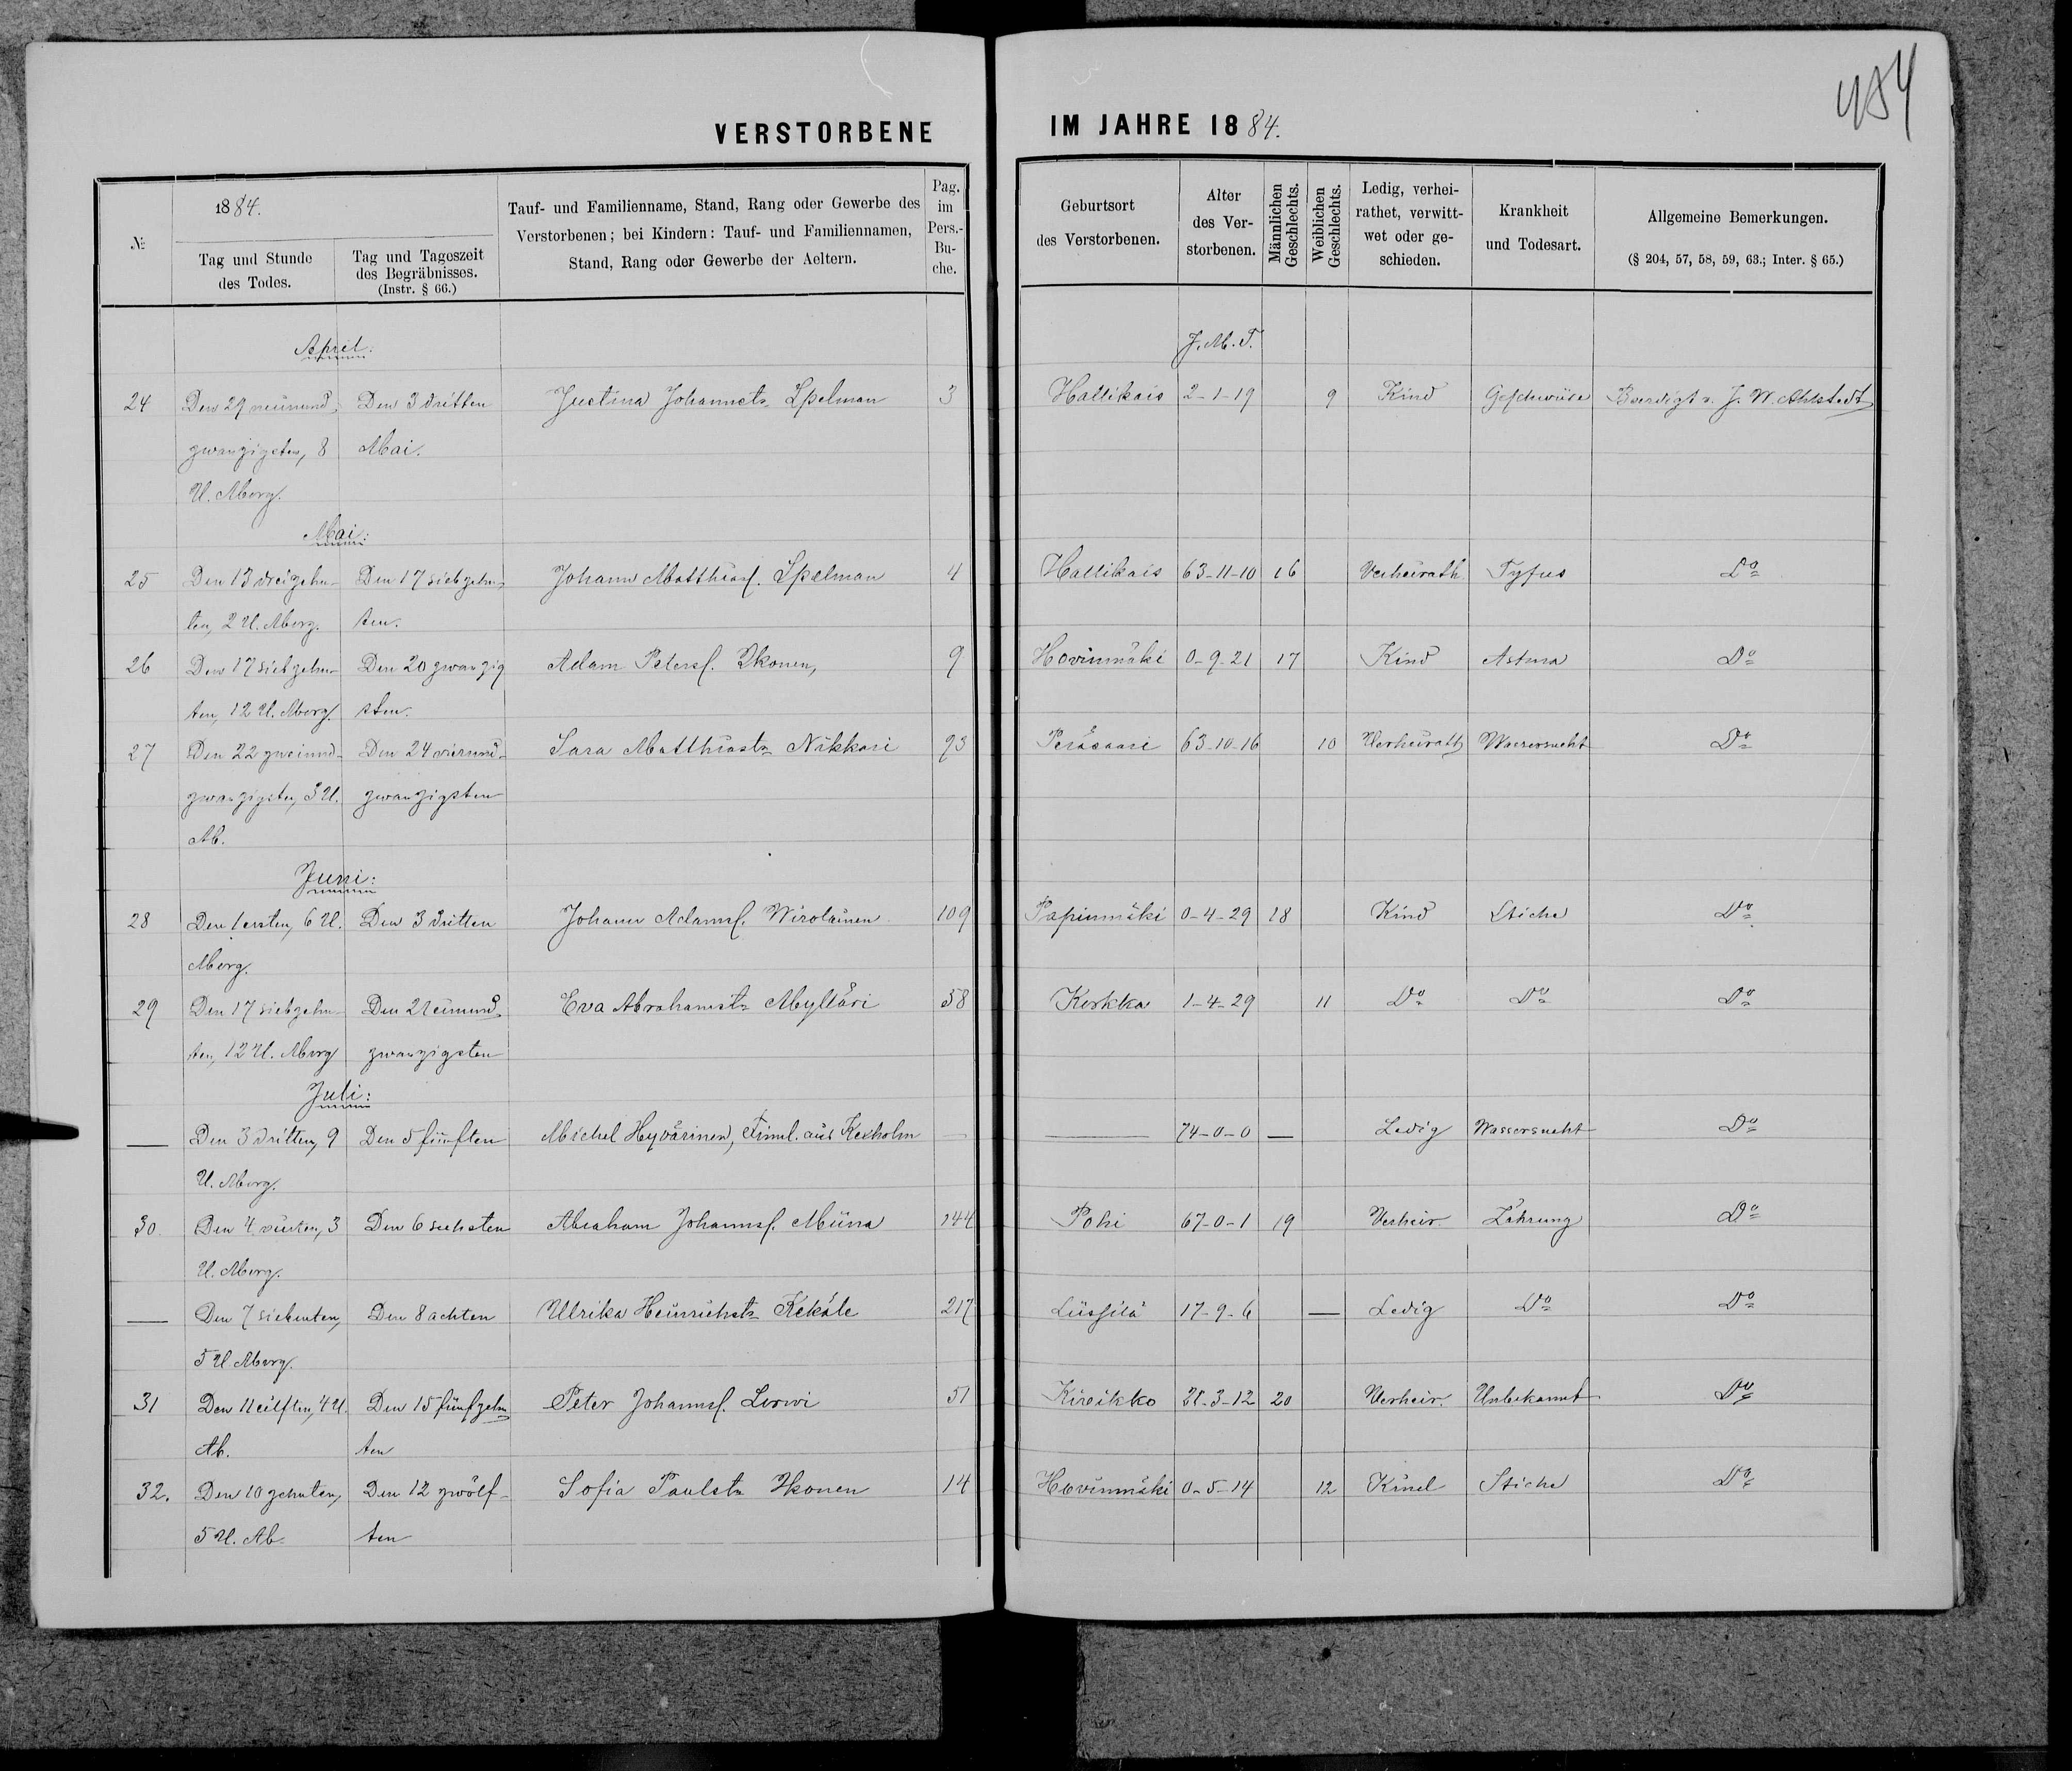 484
VERSTORBENE IM JAHRE 1884.
№ 1884. Tauf- und Familienname, Stand, Rang oder Gewerbe des Verstorbenen; bei Kindern: Tauf- und Familiennamen, Stand, Rang oder Gewerbe der Aeltern. Pag. im Pers.-Bu-che. Geburtsort des Verstorbenen. Alter des Ver-storbenen. Männlichen Geschlechts. Weiblichen Geschlechts. Ledig, verhei-rathet, verwitt-wet oder ge-schieden. Krankheit und Todesart. Allgemeine Bemerkungen. (§ 204, 57, 58, 59, 63.; Inter. § 65.)
Tag und Stunde des Todes. Tag und Tageszeit des Begräbnisses. (Instr. § 66.)
April: J. M. T.
24 Den 29 neunund- Den 3 dritten Justina Johannstr. Spelman 3 Hallikais 2-1-19 9 Kind Geschwüre Beerdigt v. J. W. Ahlstedt
zwanzigsten, 8 Mai.
U. Morg.
Mai:
25 Den 13 dreizehn- Den 17 siebzehn- Johann Matthiasf. Spelman 4 Hallikais 63-11-10 16 Verheirath. Tyfus Do
ten, 2 U. Morg. ten.
26 Den 17 siebzehn- Den 20 zwanzig Adam Petersf. Ikonen, 9 Hovinmäki 0-9-21 17 Kind Astma Do
ten, 12 U. Morg. sten.
27 Den 22 zweiund- Den 24 vierund- Sara Matthiastr. Nikkari 93 Peräsaari 63-10-16 10 Verheirath Wassersucht Do
zwanzigsten, 3 U. zwanzigsten
Ab.
Juni:
28 Den 1 ersten, 6 U. Den 3 dritten Johann Adamsf. Wirolainen 109 Papinmäki 0-4-29 18 Kind Stiche Do
Morg.
29 Den 17 siebzehn- Den 21 einund- Eva Abrahamstr. Mylläri 58 Kerkka 1-4-29 11 Do Do Do
ten, 12 U. Morg zwanzigsten
Juli:
— Den 3 dritten, 9 Den 5 fünften Michel Hyvärinen, aus Kexholm — — 74-0-0 — Ledig Wassersucht Do
U. Morg.
30 Den 4 vierten, 3 Den 6 sechsten Abraham Johannsf. Miina 144 Pohi 67-0-1 19 Verheir. Zährung Do
U. Morg.
— Den 7 siebenten, Den 8 achten Ulrika Heinrichstr. Kekäle 217 17-9-6 — Ledig Do Do
5 U. Morg.
31 Den 11 eilften, 4 U. Den 15 fünfzehn Peter Johannsf. 51 Kirsikko 28-3-12 20 Verheir. Unbekannt Do
Ab. ten
32. Den 10 zehnten, Den 12 zwölf- Sofia Paulstr. Ikonen 14 Hovinmäki 0-5-14 12 Kind Stiche Do
5 U. Ab. ten